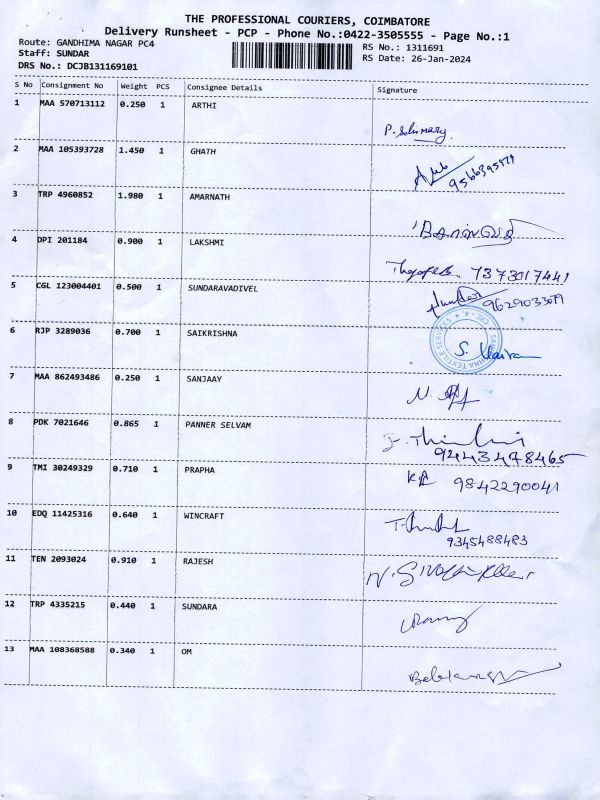 THE PROFESSIONAL COURIERS, COIMBATORE
Delivery Runsheet - PCP - Phone No.:0422-3505555 - Page No.:1
Route: GANDHIMA NAGAR PC4
RS No.: 1311691
Staff: SUNDAR
RS Date: 26-Jan-2024
DRS No.: DCJB131169101
S No Consignment No Weight PCS Consignee Details Signature
1 MAA 570713112 0.250 1 ARTHI
2 MAA 105393728 1.450 1 GHATH
3 TRP 4960852 1.980 1 AMARNATH
4 DPI 201184 0.900 1 LAKSHMI
7373017441
5 CGL 123004401 0.500 1 SUNDARAVADIVEL
6 RJP 3289036 0.700 1 SAIKRISHNA
S.
7 MAA 862493486 0.250 1 SANJAAY
8 PDK 7021646 0.865 1 PANNER SELVAM
9443478465
9 TMI 30249329 0.710 1 PRAPHA
9842290041
10 EDQ 11425316 0.640 1 WINCRAFT
9345488483
11 TEN 2093024 0.910 1 RAJESH
12 TRP 4335215 0.440 1 SUNDARA
13 MAA 108368588 0.340 1 OM